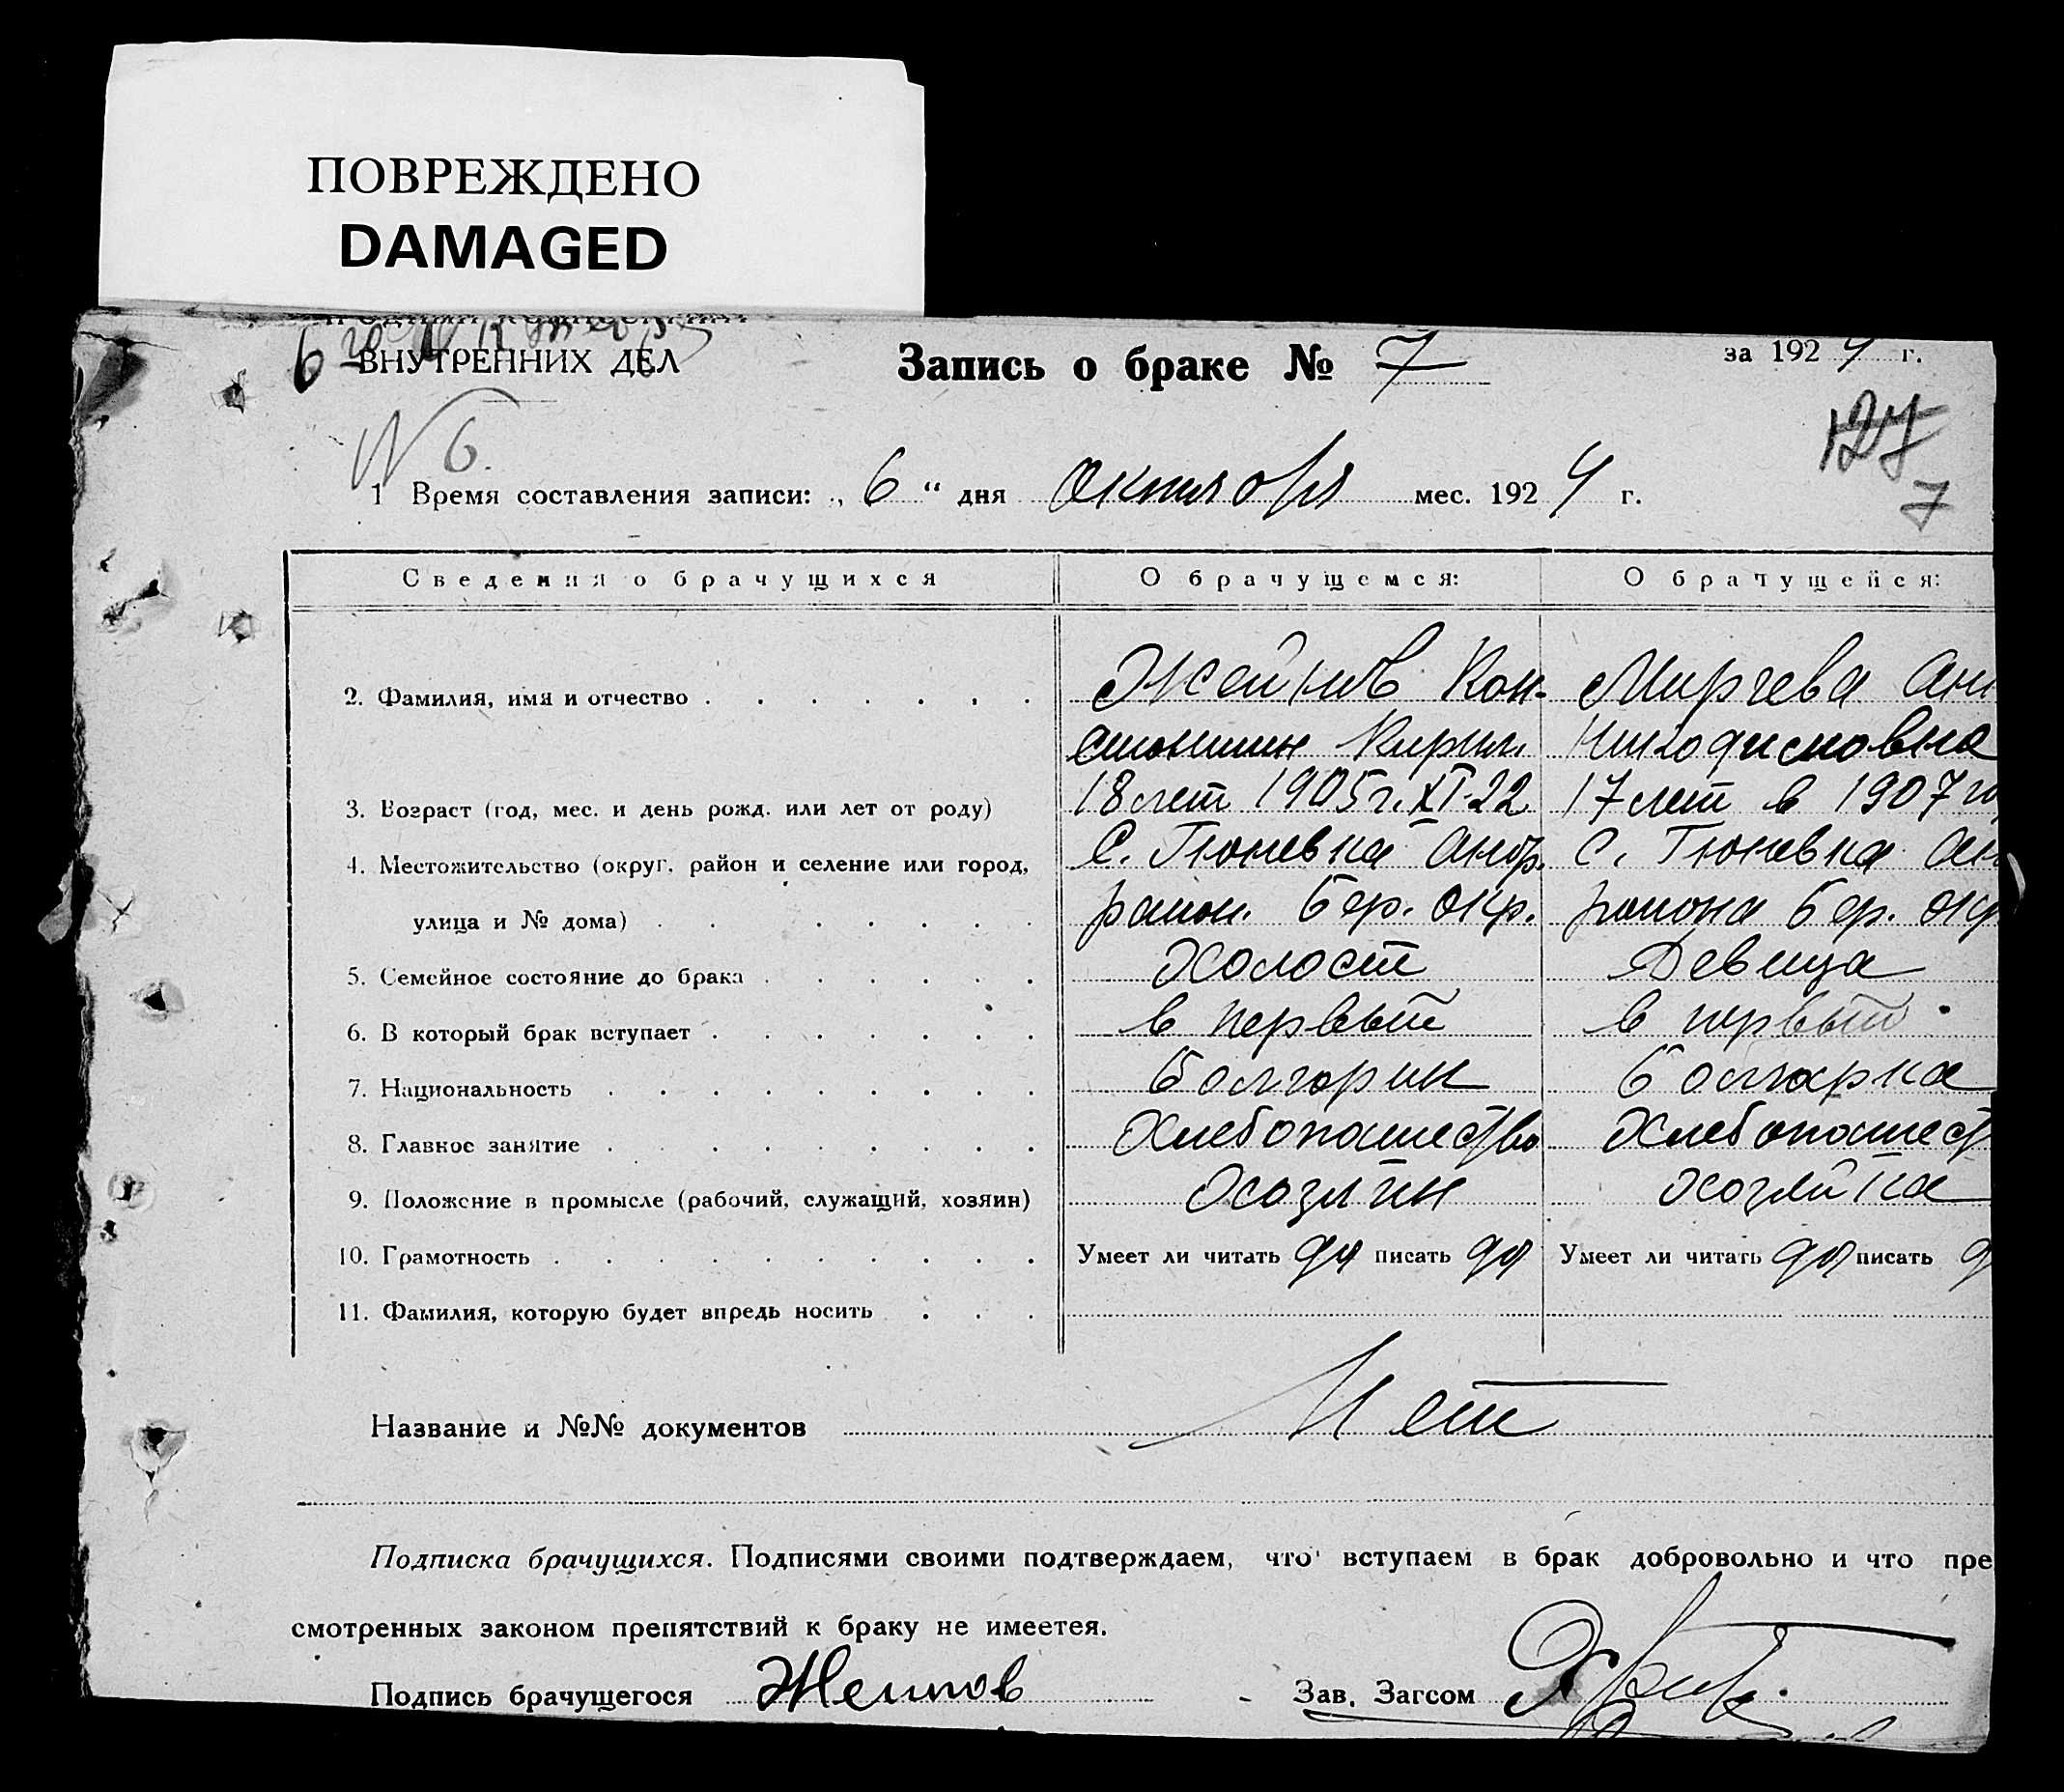 ПОВРЕЖДЕНО
DAMAGED
ВНУТРЕННИХ ДЕЛ
Запись о браке № 7
за 1924 г.
127
№ 6.
7
1 Время составления записи: „ 6 “ дня октября мес. 1924 г.
Сведения о брачущихся О брачущемся: О брачущейся:
2. Фамилия, имя и отчество Жейнов Кон- Мирчева Ан
стантин Кирил.
3. Возраст (год, мес. и день рожд. или лет от роду) 18 лет 1905 г. XI-22 17 лет в 1907 го
4. Местожительство (округ, район и селение или город, С. Гюневка Андр. С. Гюневка Ан
улица и № дома) район. Бер. окр. района Бер. окр
5. Семейное состояние до брака Холост Девица
6. В который брак вступает в первый в первый
7. Национальность Болгарин Болгарка
8. Главное занятие Хлебопашество Хлебопашест
9. Положение в промысле (рабочий, служащий, хозяин) Хозяин хозяйка
10. Грамотность Умеет ли читать да писать да Умеет ли читать да писать д
11. Фамилия, которую будет впредь носить
Название и №№ документов Нет
Подписка брачущихся. Подписями своими подтверждаем, что вступаем в брак добровольно и что пре
смотренных законом препятствий к браку не имеетея.
Подпись брачущегося Жейнов Зав. Загсом